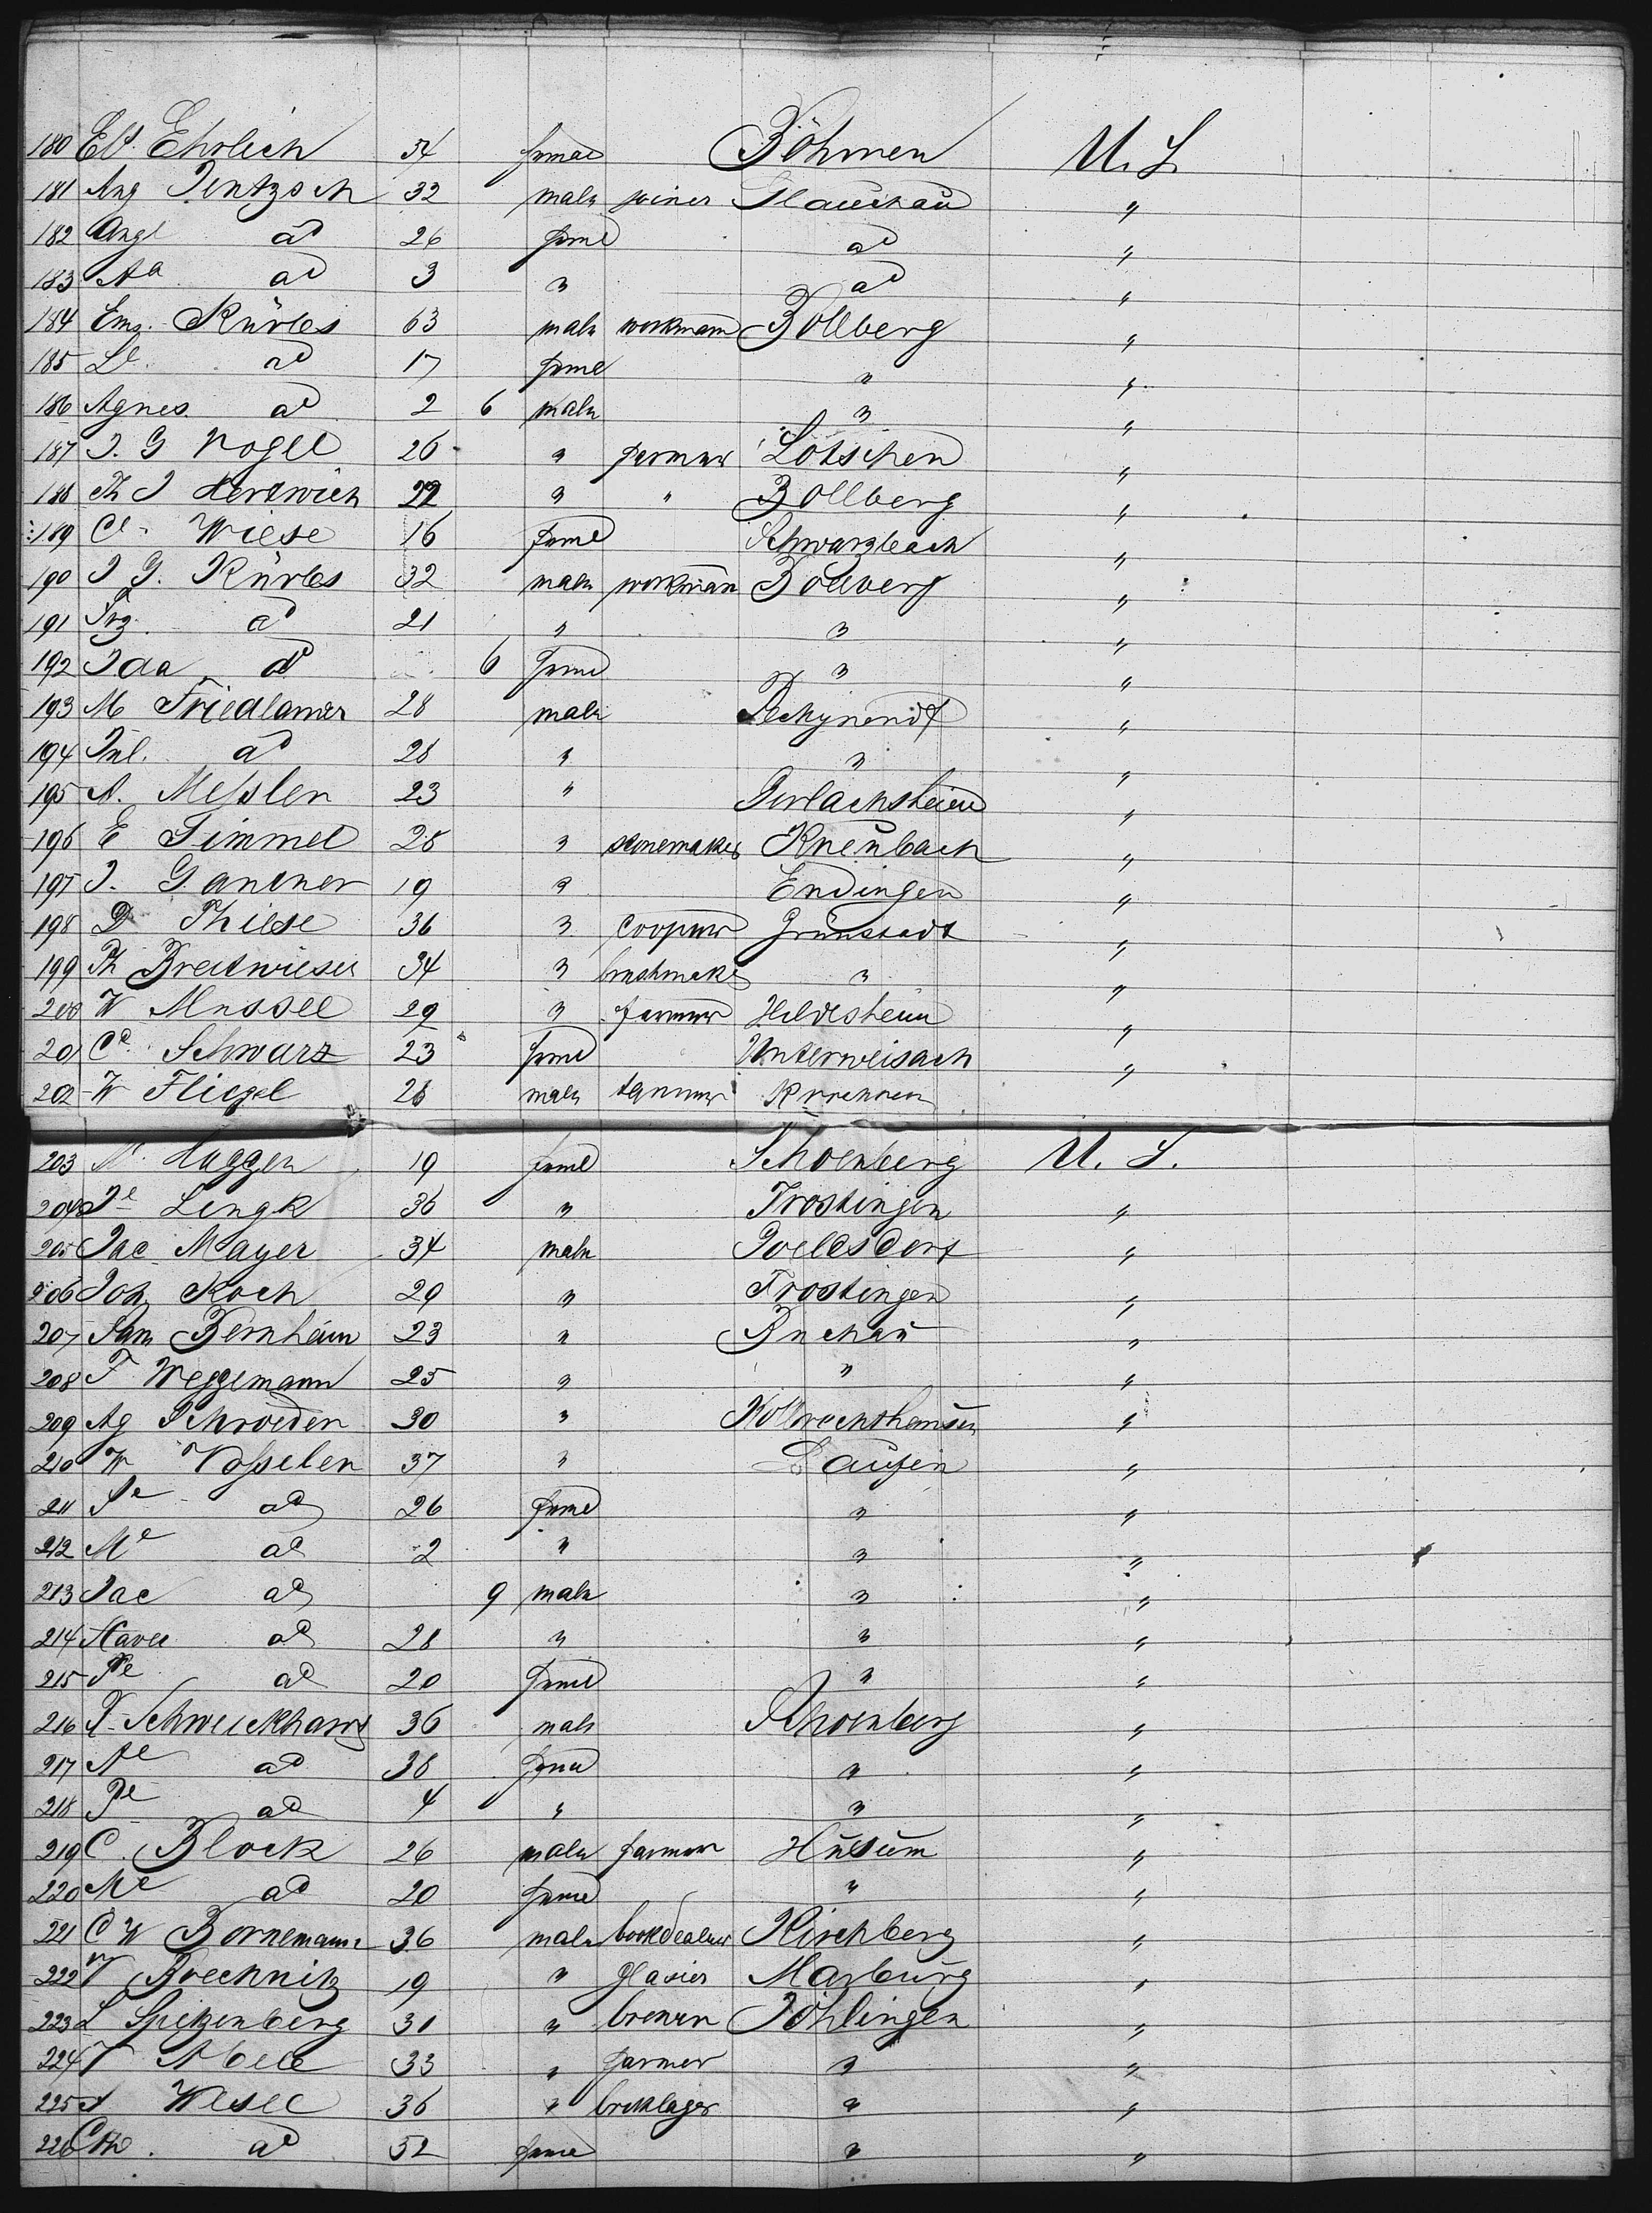 180 Elt. Ehrlich 54 femal Böhmen U. S.
181 Aug Jentzsch 32 male joiner Glauchau "
182 Augt ad 26 feml ad "
183 Aa ad 3 " ad "
184 Emg. Kürbs 63 male workmann Zollberg "
185 Le. ad 17 feml " "
186 Agnes ad 2 6 male " "
187 J. G Vogel 26 " farmer Lötschen "
188 Th J Hertwich 22 " " Zollberg "
189 Ce. Wiese 16 feml Schwarzbach "
190 J G. Kürbs 32 male workmann Zollberg "
191 Frz. ad 21 " " "
192 Ida d 6 feml " "
193 M Friedlamer 28 male "
194 Jul. ad 28 " " "
195 A. Messlen 23 " Gerlachsheim "
196 E Simmel 28 " Kneubach "
197 J. Gantner 19 " Endingen "
198 D Thiese 36 " Cooper Grünstadt "
199 Th Breitwieser 34 " brushmaker " "
200 W Mussel 29 " farmer Hildesheim "
201 Ce. Schwarz 23 feml Unterweisach "
202 W Fliegel 28 male tanner
203 N. Haggen 19 feml Schoenberg U. S.
204 Je Lengk 36 " Trostingen "
205 Jac Mayer 34 male Goellsdorf "
206 Joh Koch 29 " Trostingen "
207 Sam Bernheim 23 " Buchau "
208 F Weggemann 25 " " "
209 Ag Schroeder 30 " "
210 W Vosseler 37 " Laufen "
211 Se ad 26 feml " "
212 Me ad 2 " " "
213 Jac ad 9 male " "
214 Xaver ad 28 " " "
215 Pe ad 20 feml " "
216 F. Schweickhart 36 male Schoenberg "
217 Ae ad 38 feml " "
218 Pe ad 4 " " "
219 C. Block 26 male farmer Husum "
220 Me ad 20 feml " "
221 C W Bornemann 36 male bookdealer Kirchberg "
222 V Brecknitz 19 " glasier Marburg "
223 L Spitzenberg 31 " brewer Jöhlingen "
224 V Abele 33 " farmer " "
225 A Wesel 36 " breklager " "
226 Cthe. ad 52 feml " "